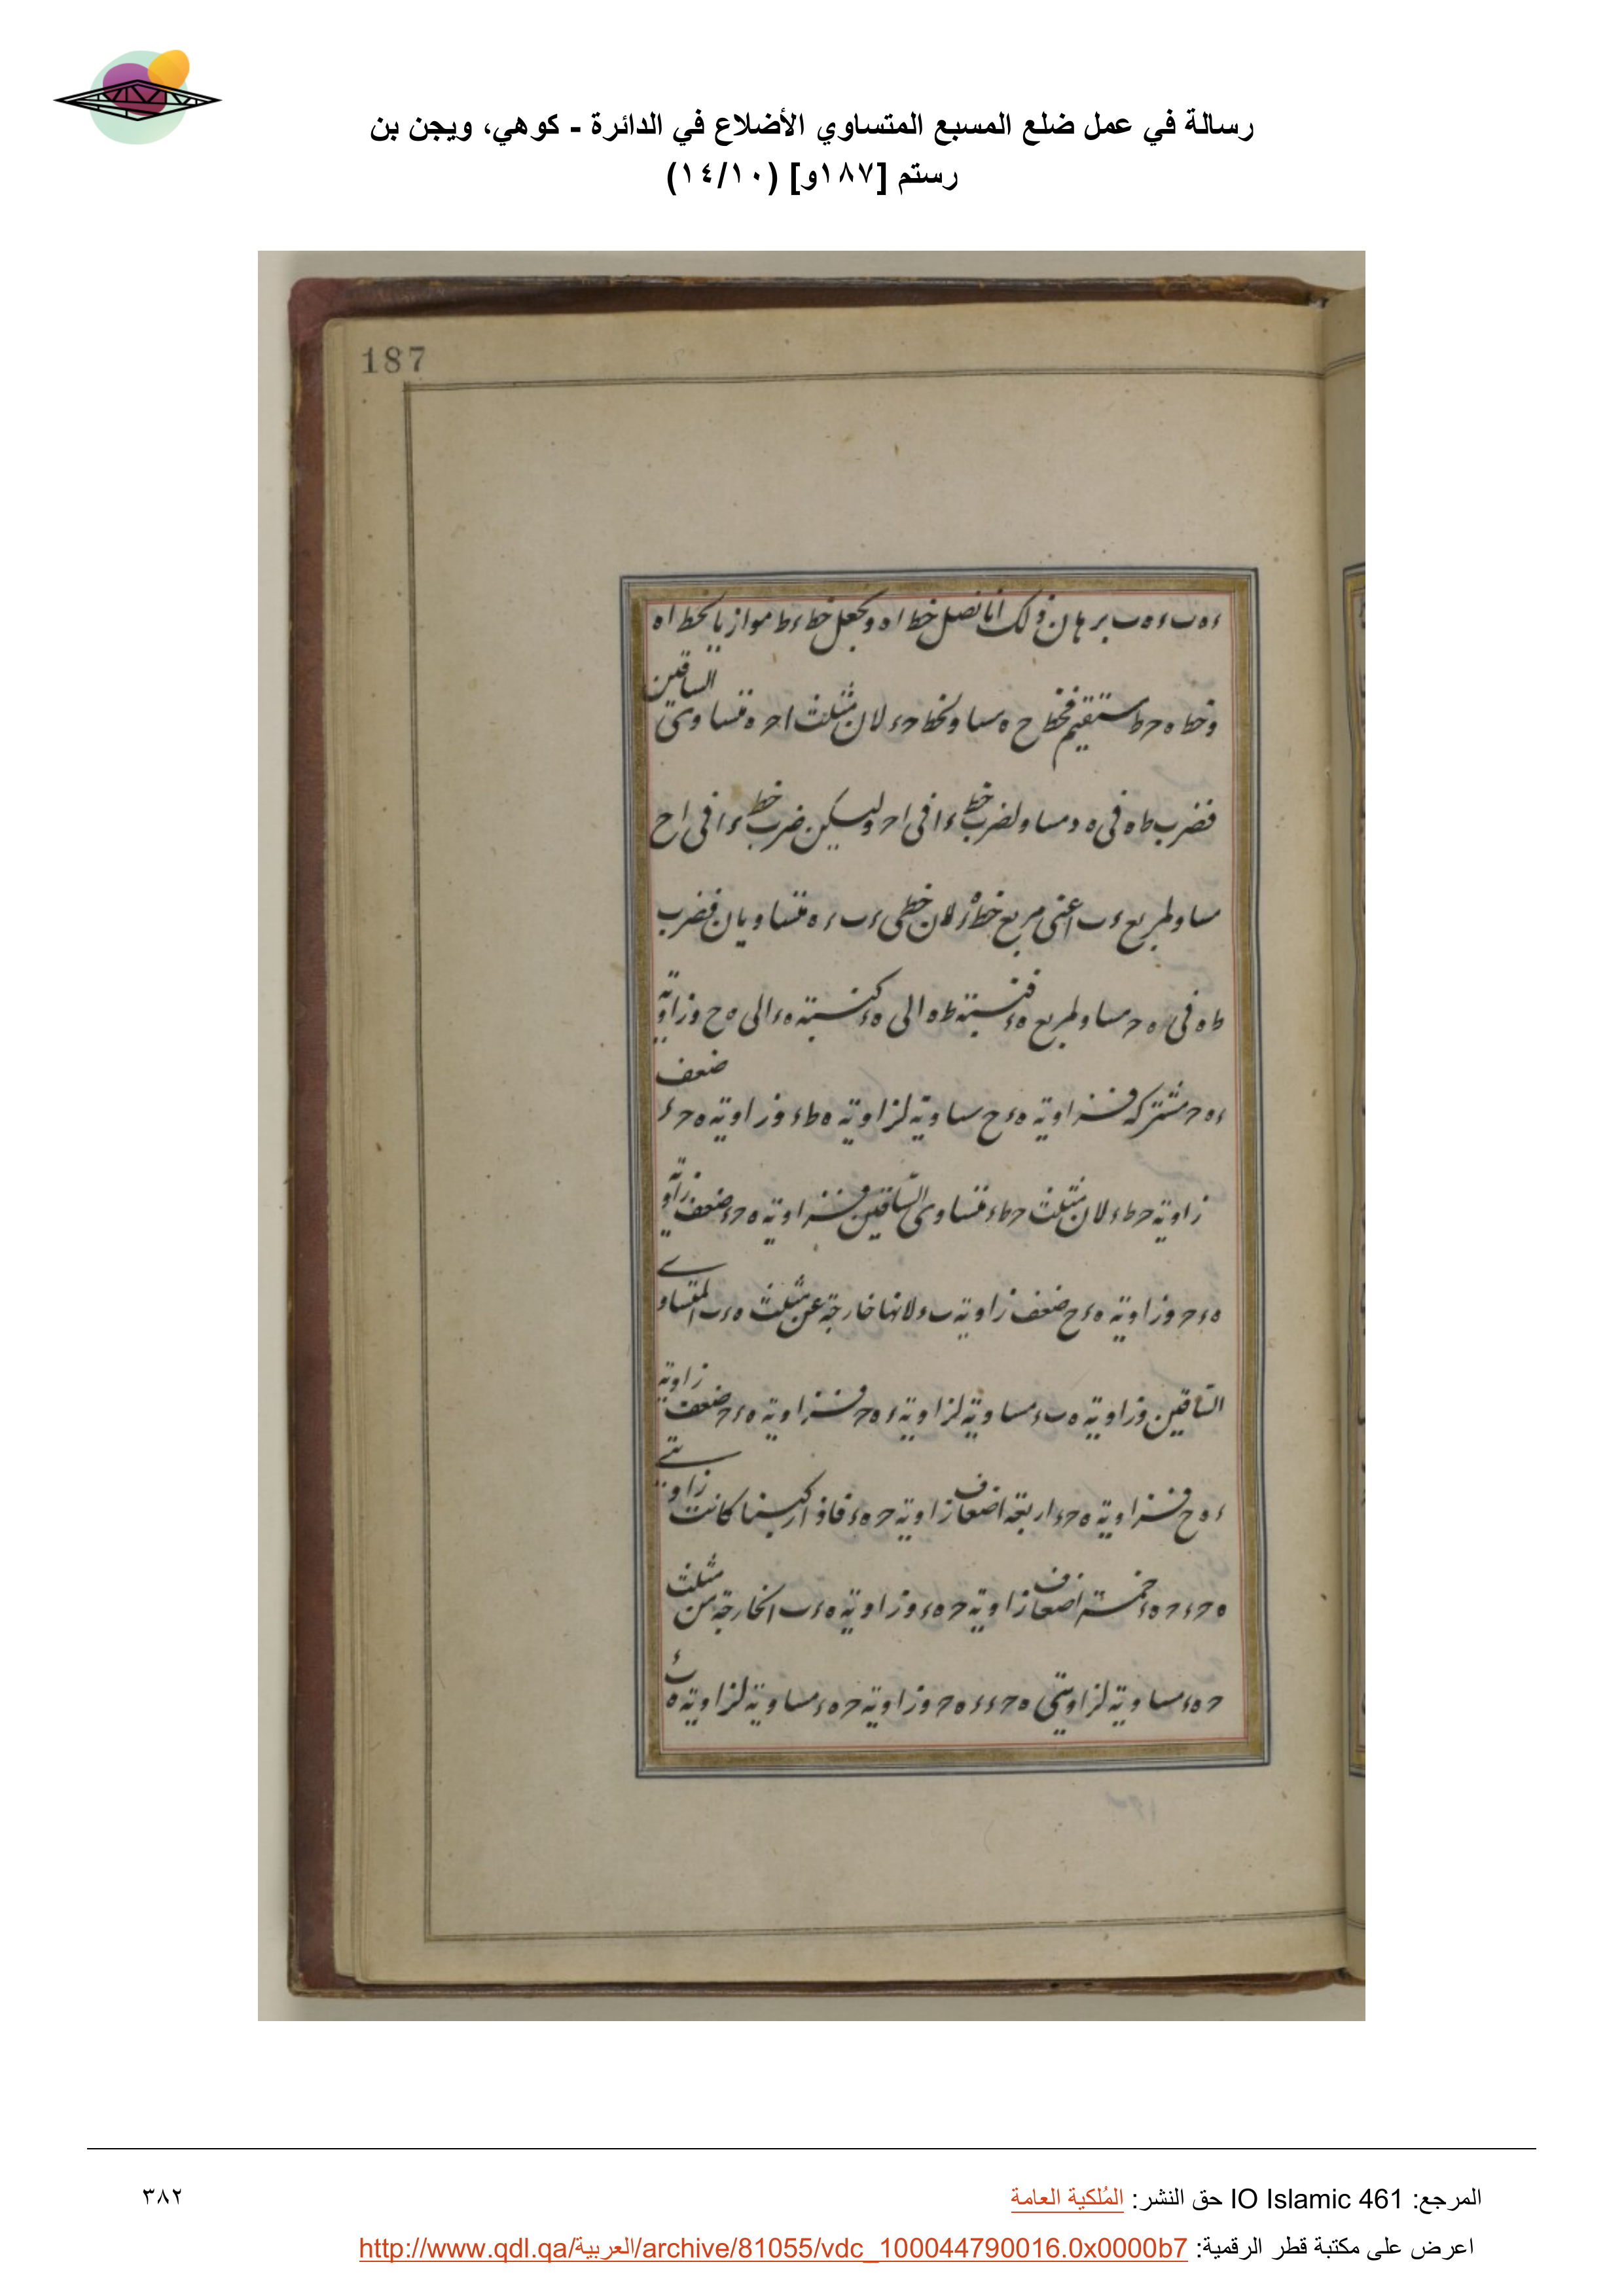 رسالة في عمل ضلع المسبع المتساوي الأضلاع في الدائرة - كوهي، ويجن بن
رستم [١٨٧و] (١٤/١٠)
187
ء ه ب ء ه ب برهان ذلك انا نصل خط ا ه ونجعل خط ء ط موازيا لخط ا ه
وخط ه ح ط مستقيم فخط ح ه مساو لخط ح ء لان مثلث ا ح ه متساوى الساقين
فضرب ط ه فى ه د مساو لضرب خط ء ا فى ا ح وليكن ضرب خط ء ا فى ا ح
مساو لمربع ء ب اعنى مربع خط لان خطى ء ب ء ه متساويان فضرب
ط ه فى ه ح مساو لمربع ه ء فنسبته ط ه الى ه ء كنسبته ه ء الى ه ح وزاوية
ء ه ح مشتركه فزاوية ه ء ح مساوية لزاوية ه ط ء وزاوية ه ح ء ضعف
زاوية ح ط ء لان مثلث ح ط ء متساوى الساقين فزاوية ه ح ء ضعف زاوية
ه ء ح وزاوية ه ء ح ضعف زاوية ب ء لانها خارجة عن مثلث ه ء ب المتساوى
الساقين وزاوية ه ب ء مساوية لزاوية ء ه ح فزاوية ه ء ح ضعف زاوية
ء ه ح فزاوية ه ح ء اربعة اضعاف زاوية ح ه ء فاذا ركبنا كانت زاويتى
ه ح ء ح ه ء خمسة اضعاف زاوية ح ه ء وزاوية ه ء ب الخارجة من مثلث
ح ه ء مساوية لزاويتى ه ح ء ء ه ح وزاوية ح ه ء مساوية لزاوية ه ب ء
المرجع: IO Islamic 461 حق النشر: المُلكية العامة
٣٨٢
اعرض على مكتبة قطر الرقمية: http://www.qdl.qa/العربية/archive/81055/vdc_100044790016.0x0000b7